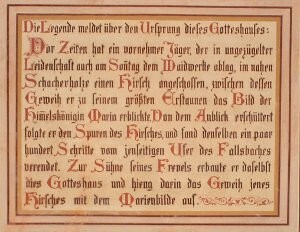 Die Legende meldet über den Ursprung dieses Gotteshauses:
Vor Zeiten hat ein vornehmer Jäger, der in ungezügelter
Leidenschaft auch am Soñtag dem Waidwerke oblag, im nahen
Schacherholze einen Hirsch angeschossen, zwischen dessen
Geweih er zu seinem größten Erstaunen das Bild der
Him̃elskönigin Maria erblickte. Von dem Anblick erschüttert
folgte er den Spuren des Hirsches, und fand denselben ein paar
hundert Schritte vom jenseitigen Ufer des Fallsbaches
verendet. Zur Sühne seines Frevels erbaute er daselbst
dies Gotteshaus und hieng darin das Geweih jenes
Hirsches mit dem Marienbilde auf.